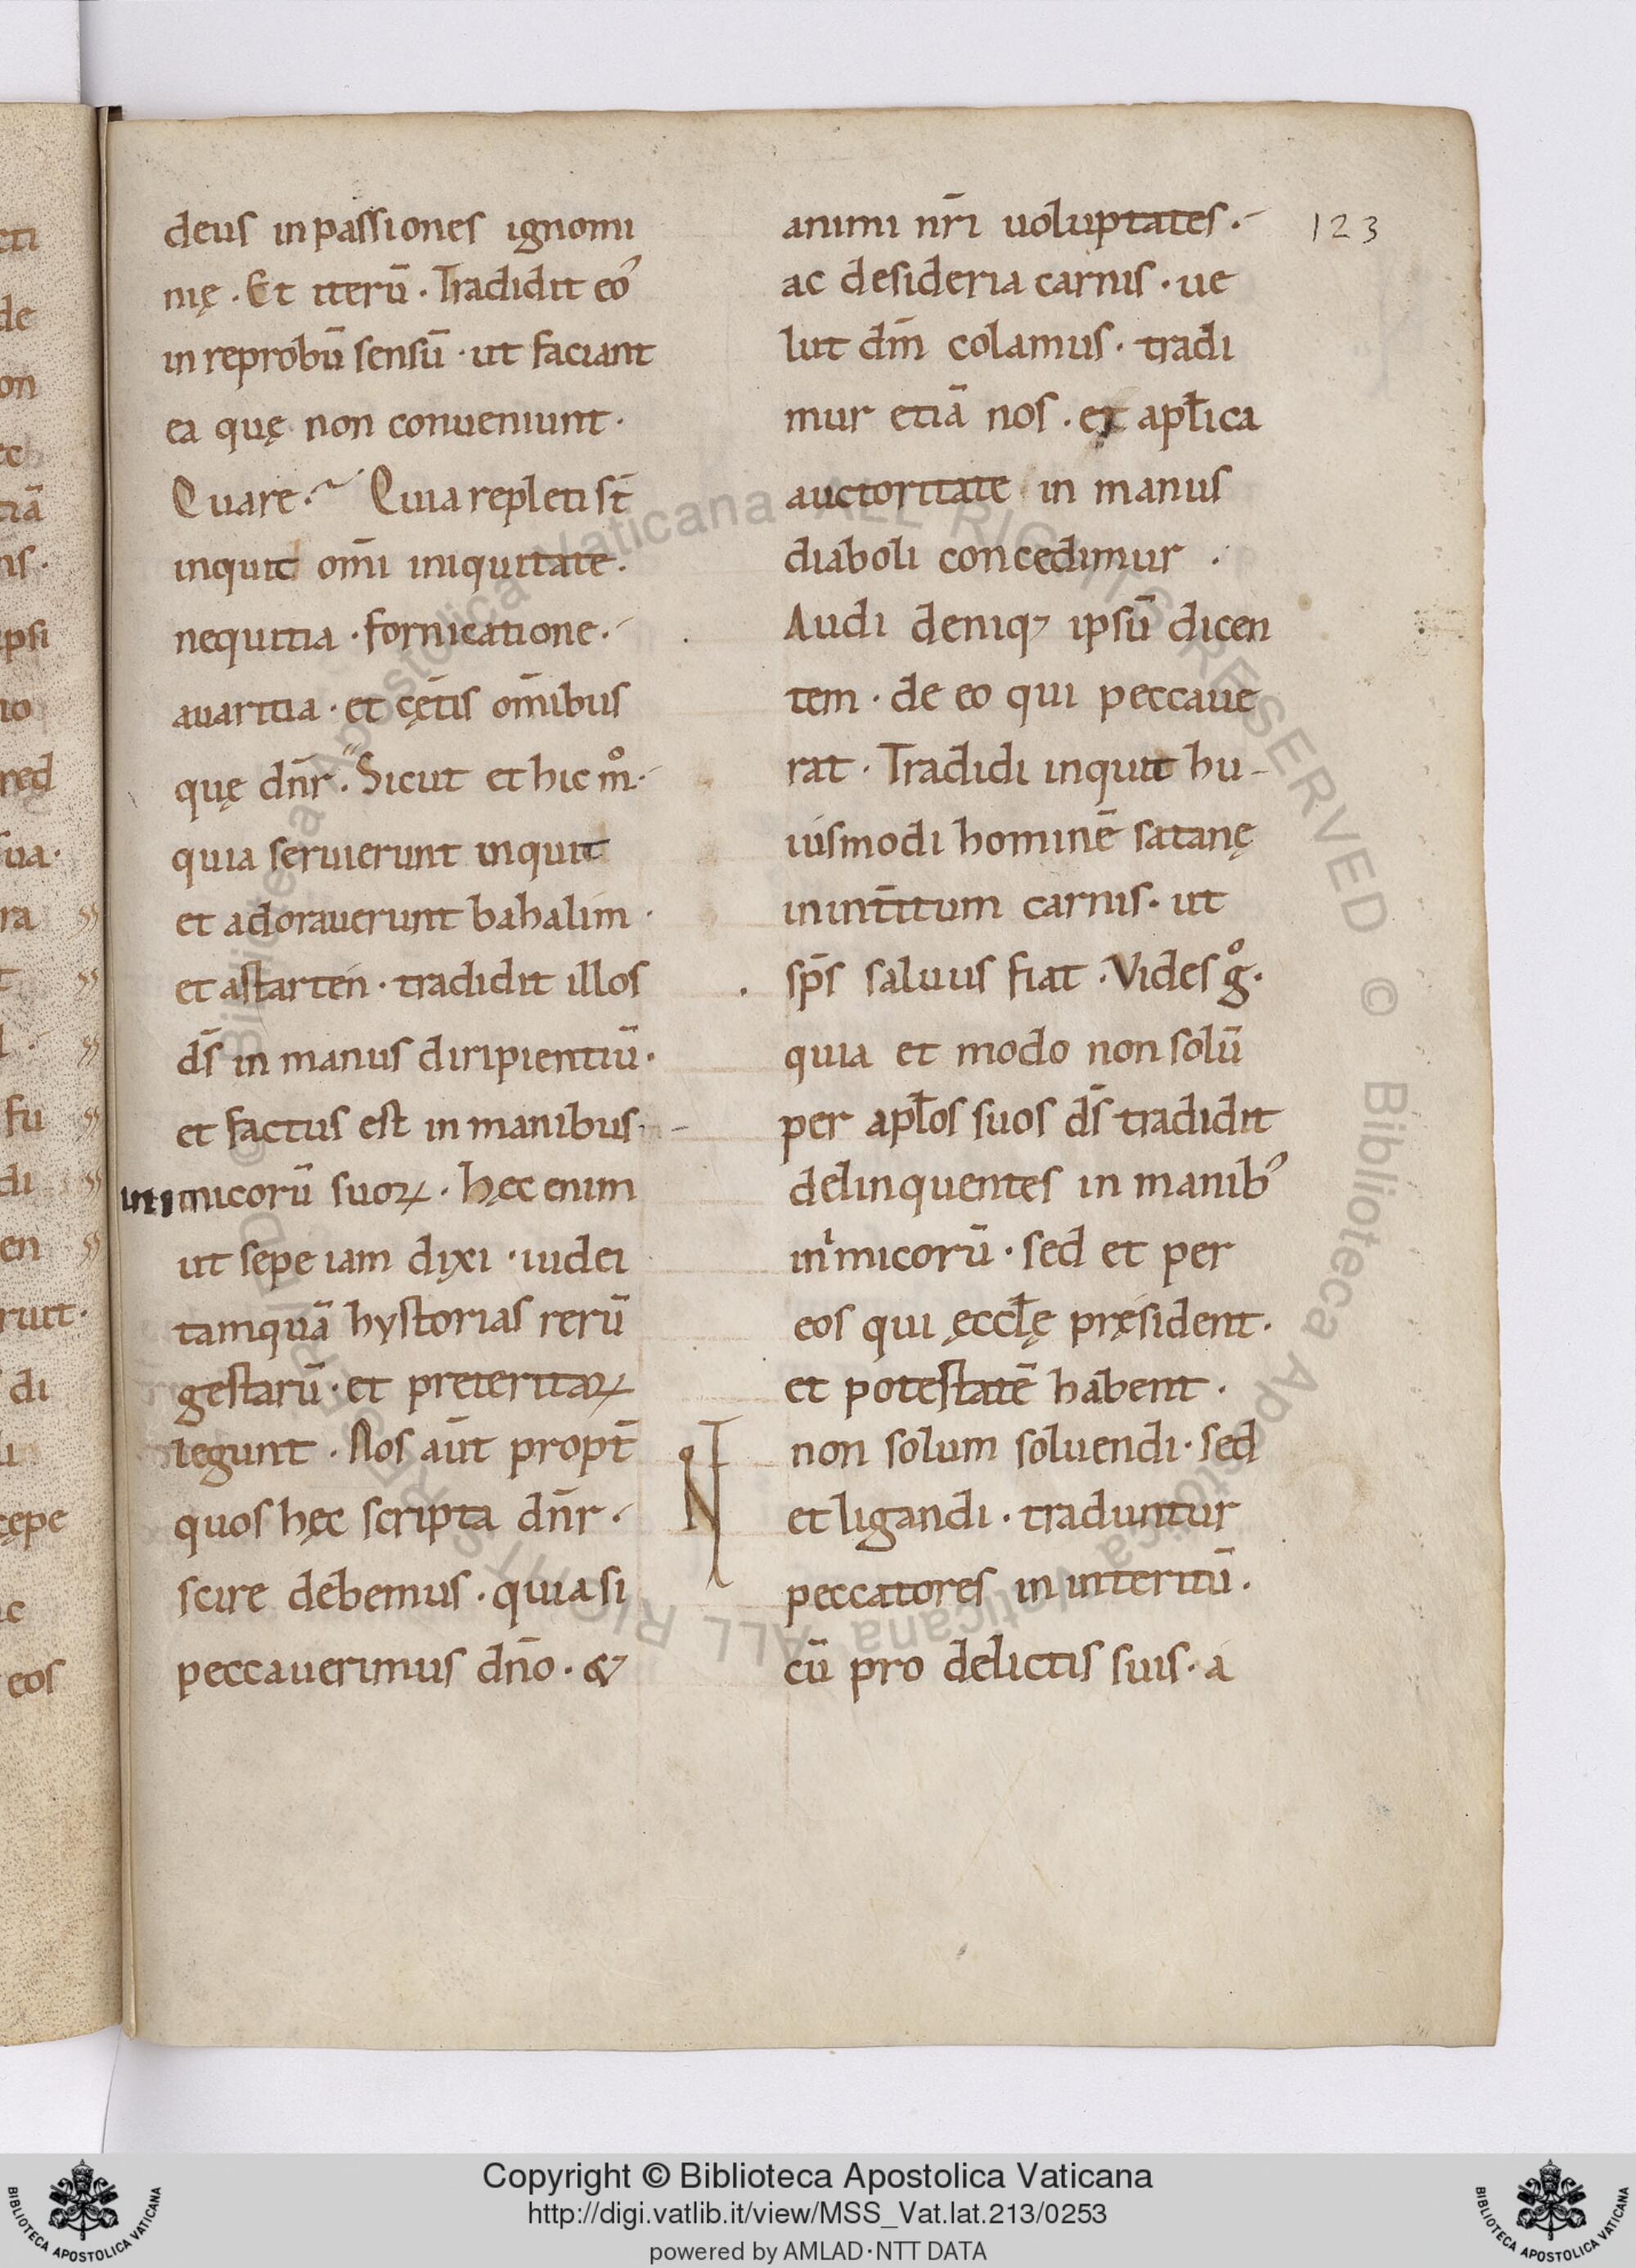 deus in passiones ignomi
nię . Et iterū . Tradidit eo᾽
in reprobū sensū · ut faciant
ea quę non conueniunt ·
Quare . Quia repleti st̄
inquit om̄i iniquitate .
nequitia · fornicatione .
auaritia · et cęt̄is om̄ibus
quę dn̄r . Sicut et hic m̊ .
quia seruierunt inquit
et adorauerunt bahalim ·
et astarten · tradidit illos
ds̄ in manus diripientiū .
et factus est in manibus -
inimicorū suoꝝ . hęc enim
ut sepe iam dixi · iudei
tamquā hystorias rerū
gestarū · et preteritaꝝ
legunt . Nos aūt propt̄
quos hęc scripta dn̄r .
scire debemus . quia si
peccauerimus dn̄o . &
animi nr̄i uoluptates .
ac desideria carnis . ue
lut dm̄ colamus . tradi
mur etiā nos . ex apl̄ica
auctoritate in manus
diaboli concedimur .
Audi deniqꝫ ipsū dicen
tem . de eo qui peccaue
rat . Tradidi inquit hu-
iusmodi hominē satanę
in int̄itum carnis . ut
sp̄s saluus fiat . Vides g̊ .
quia et modo non solū
per apl̄os suos ds̄ tradidit
delinquentes in manib᾽
inimicorū . sed et per
eos qui ęccl̄ę pręsident .
et potestatē habent .
non solum soluendi . sed
et ligandi . traduntur
peccatores in interitū .
cū pro delictis suis . a
123
N
cti
de
on
ec
tiā
ns .
ipsi
no
red
sua .
ra
fu
di
en
runt .
di
cępe
eos
© Biblioteca Apostolica Vaticana ALL RIGHTS RESERVED © Biblioteca Apostolica Vaticana ALL RIGHTS RESERVED
BIBLIOTECA APOSTOLICA VATICANA
Copyright © Biblioteca Apostolica Vaticana
http://digi.vatlib.it/view/MSS_Vat.lat.213/0253
powered by AMLAD·NTT DATA
BIBLIOTECA APOSTOLICA VATICANA